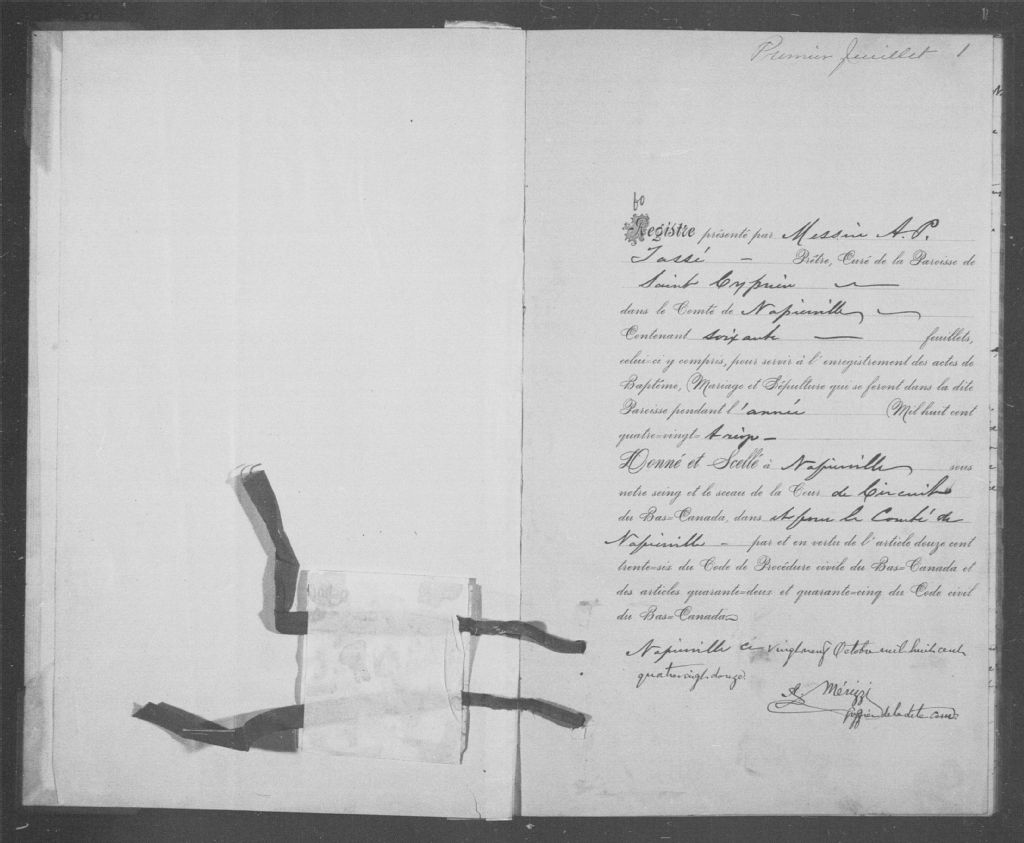 Premier feuillet 1
60
Registre présenté par Messire A. P.
Tassé - Prêtre, Curé de la Paroisse de
Saint Cyprien
dans le Comté de Napierville
Contenant soixante feuillets,
celui-ci y compris, pour servir à l'enregistrement des actes de
Baptême, Mariage et Sépulture qui se feront dans la dite
Paroisse pendant l'année Mil huit cent
quatre-vingt- treize -
Donné et Scellé à Napierville sous
notre seing et le sceau de la Cour de Circuit
du Bas-Canada, dans et pour le Comté de
Napierville - par et en vertu de l'article douze cent
trente-six du Code de Procédure civile du Bas-Canada et
des articles quarante-deux et quarante-cinq du Code civil
du Bas-Canada
Napierville ce vingt neuf Octobre mil huit cent
quatre vingt douze.
A. Mérizzi
Greffier de la dite Cour.